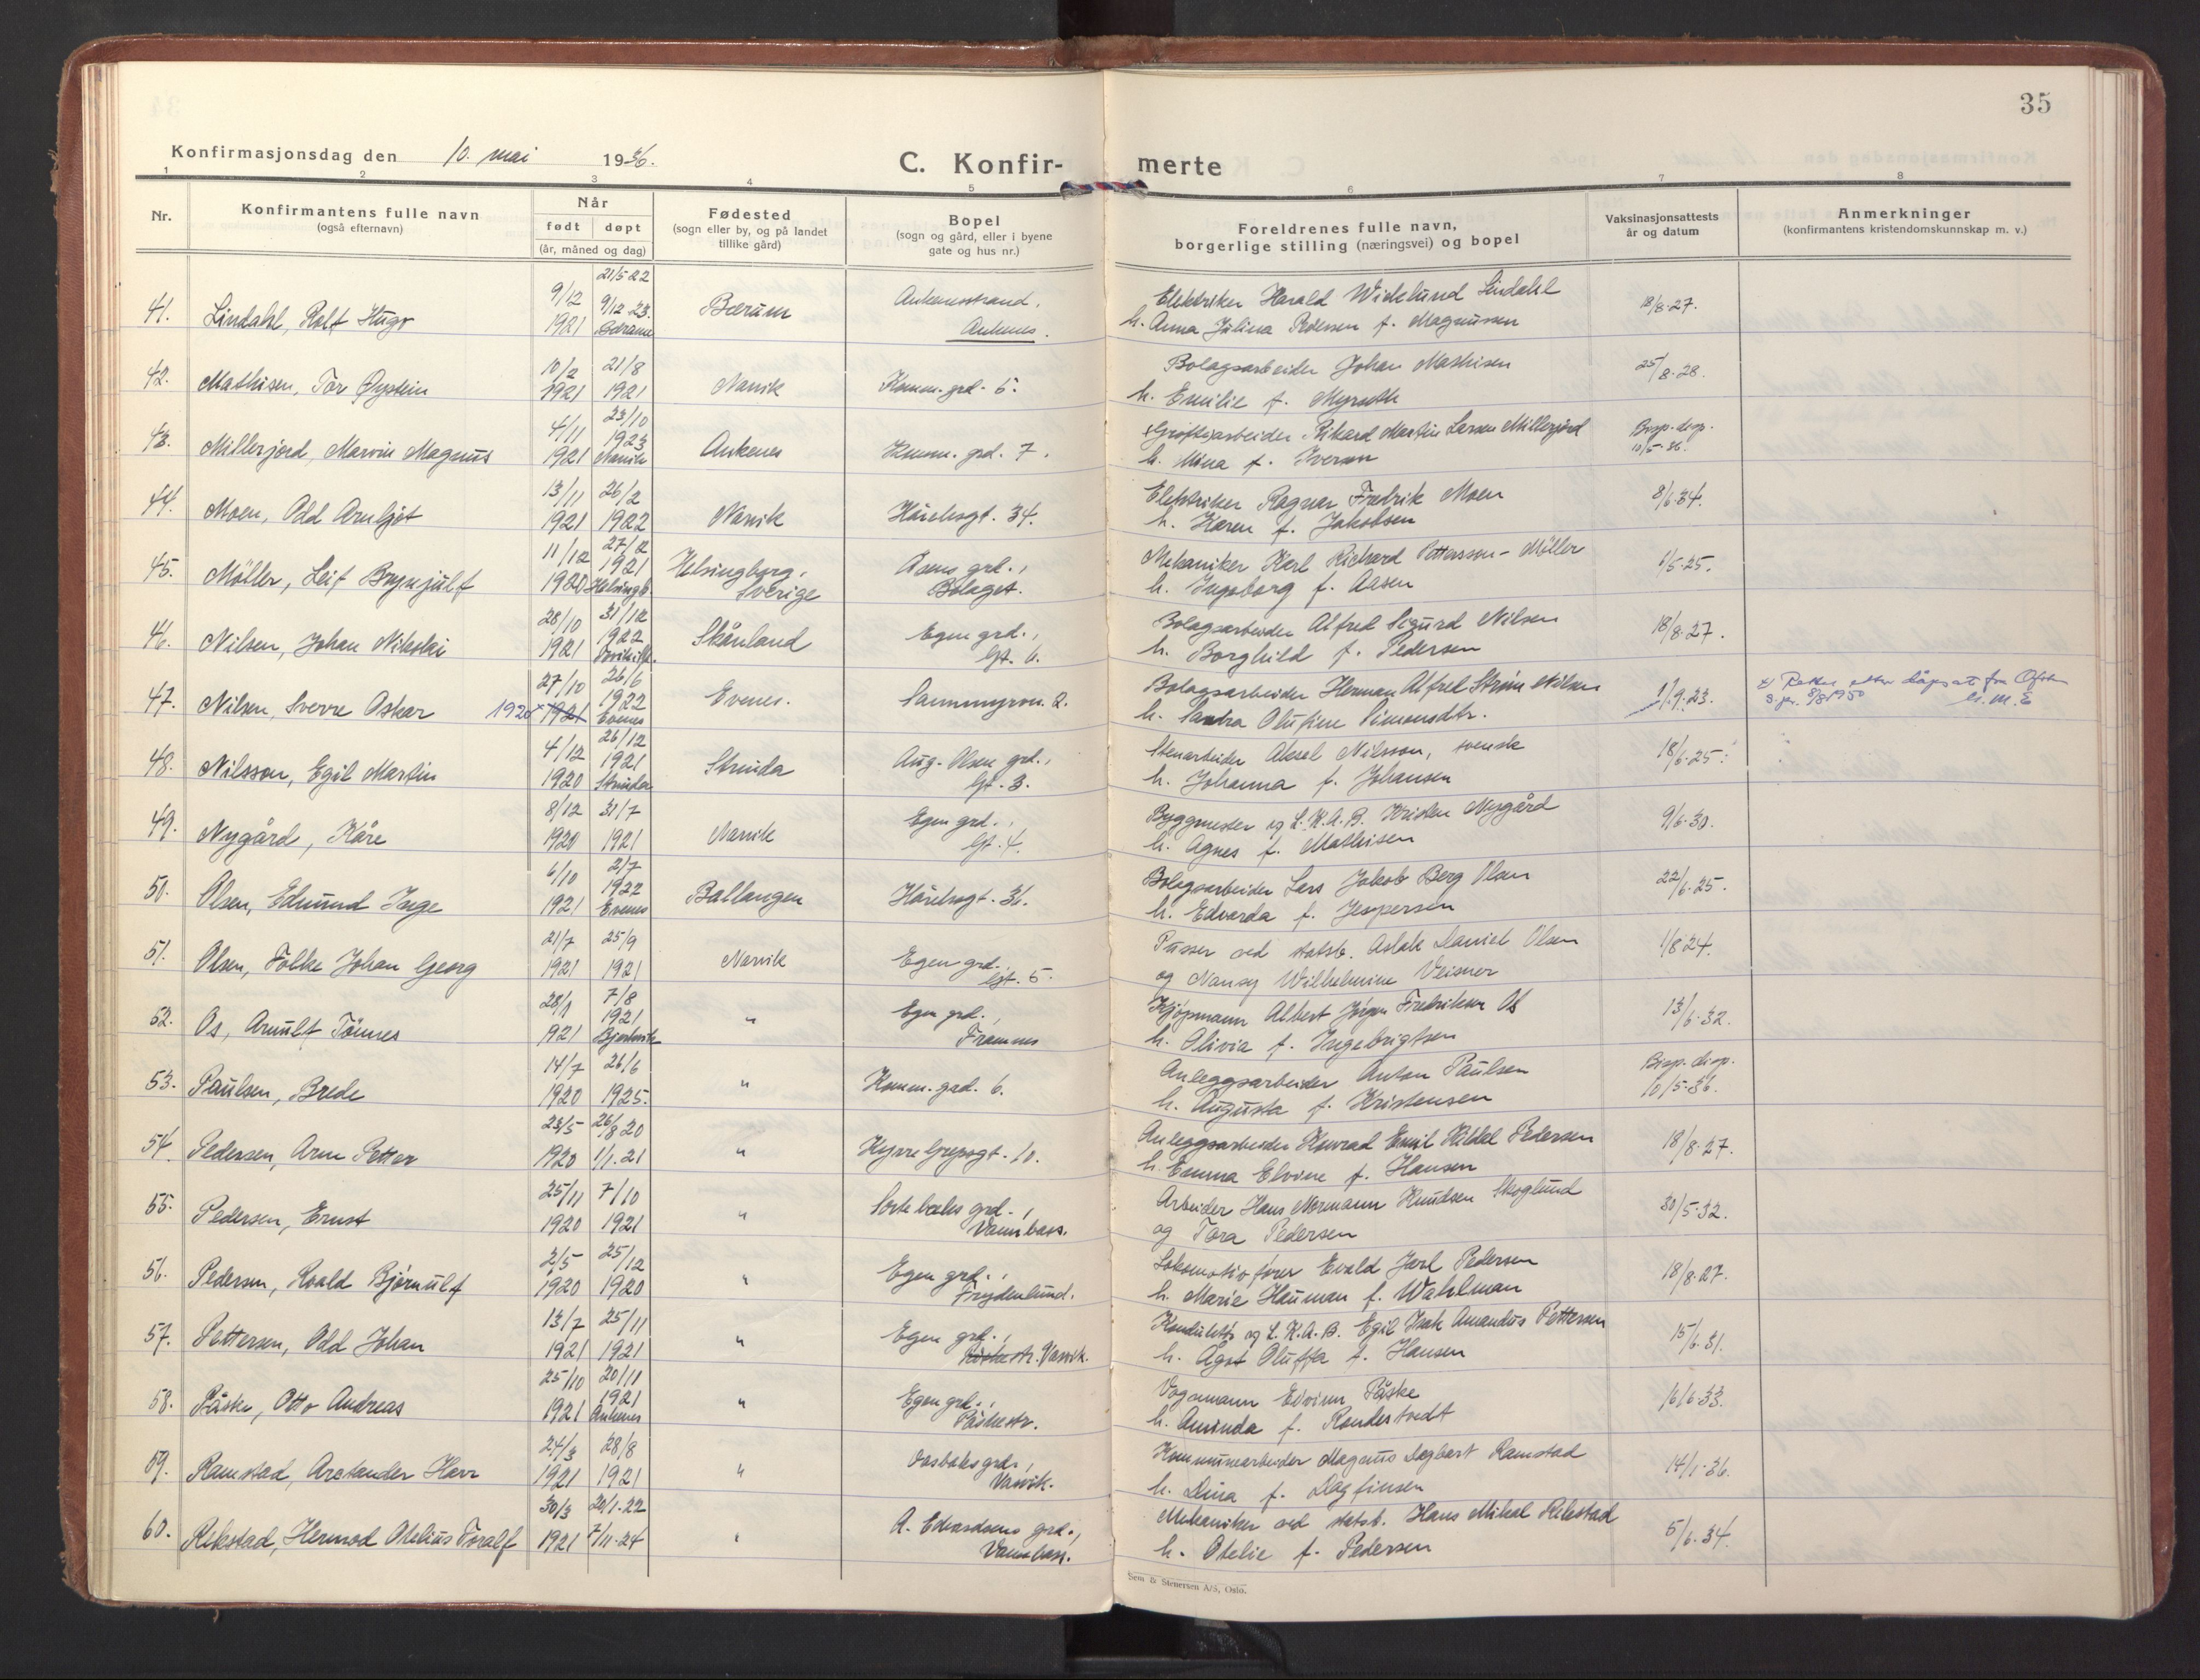 35
Konfirmasjonsdag den 10. mai 1936.
C. Konfirmerte
1 2 3 4 5 6 7 8
Nr.
Konfirmantens fulle navn
(også efternavn)
Når
født døpt
(år, måned og dag)
Fødested
(sogn eller by, og på landet
tillike gård)
Bopel
(sogn og gård, eller i byene
gate og hus nr.)
Foreldrenes fulle navn,
borgerlige stilling (næringsvei) og bopel
Vaksinasjonsattests
år og datum
Anmerkninger
(konfirmantens kristendomskunnskap m. v.)
41. Lindahl, Rolf Hugo 9/12 1921 21/5 22 9/12 23. Bærum Ankenesstrand, Ankenes. Elektriker Harald Lindahl 18/8-27.
h. Anna Julina Pedersen f. Magnussen
42. Mathisen, Tor Øystein 10/2 1921 21/8 1921 Narvik Komm. grd. 6. Bolagsarbeider Johan Mathisen 25/8-28.
h. Emilie f. Myrseth
43. Millerjord, Marvin Magnus 4/11 1921 23/10 1923 Narvik Ankenes Komm. grd. 7. Grøftearbeider Rikard Martin Larsen Millerjord Bisp. disp. 10/5-36.
h. Mina f. Iversen
44. Moen, Odd Arnljot 13/11 1921 26/2 1922 Narvik Håreksgt. 34. Elektriker Ragnar Fredrik Moen 8/6-34.
h. Karen f. Jakobsen
45. Möller, Leif Brynjulf 11/12 1920 27/2 1921 Helsingb. Helsingborg, Sverige Åsens grd., Bolaget. Mekaniker Karl Richard Pettersson-Möller 1/5-25.
h. Ingeborg f. Aasen
46. Nilsen, Johan Nikolai 28/10 1921 31/12 1922 Skånland Egen grd., Gt. 6. Bolagsarbeider Alfred Sigurd Nilsen 18/8-27.
h. Borghild f. Pedersen
47. Nilsen, Sverre Oskar 1920 x 27/10 1921 26/6 1922 Evenes Evenes. Bolagsarbeider Herman Alfred Strøm Nilsen 1/9-23. x) Rettet etter dåpsatt. fra Ofoten
h. Sandra Olufine Simonsdtr. 8/8 1950
48. Nilsson, Egil Martin 4/12 1920 26/12 1921 Strinda Strinda Aug. Olsen grd., Gt. 3. Stenarbeider Aksel Nilsson, svensk 18/6-25.
h. Johanna f. Johansen
49. Nygård, Kåre 8/12 1920 31/7 1921 Narvik Egen grd., Gt. 4. Byggmester og L.K.A.B. Kristen Nygård 9/6-30.
h. Agnes f. Mathisen
50. Olsen, Edmund Inge 6/10 1921 2/7 1922 Evenes Ballangen Håreksgt. 31. Bolagsarbeider Lars Jakob Berg Olsen 22/6-25.
h. Edvarda f. Jespersen
51. Olsen, Folke Johan Georg 21/7 1921 25/9 1921 Narvik Egen grd., Gt. 5 Pusser ved statsb. Aslak Daniel Olsen 1/8 24.
og Nancy Wilhelmine Veisner
52. Os, Arnulf Tönnes 28/1 1921 7/8 1921 Bjerkvik " Egen grd., Framnes Kjøpmann Albert Jørgen Fredriksen Os 13/6-32.
h. Olivia f. Ingebrigtsen
53. Paulsen, Brede 14/7 1920 26/6 1925. " Komm. grd. 6. Anleggsarbeider Anton Paulsen Bisp. disp. 10/5-36.
h. Augusta f. Kristensen
54. Pedersen, Arne Petter 23/5 1920 26/8 20 1/1. 21 " Kjerre Grepsgt. 10. Anleggsarbeider Konrad Emil Hildal Pedersen 18/8-27.
h. Emma Elvine f. Hansen
55. Pedersen, Ernst 25/11 1920 7/10 1921 " Vannbass. Arbeider Hans Normann Knudsen Skoglund 30/5-32.
og Tora Pedersen
56. Pedersen, Roald Bjørnulf 2/5 1920 25/12 1920 " Egen grd., Frydenlund. Lokomotivfører Evald Jarl Pedersen 18/8-27.
h. Marie Hauman f. Wahlman
57. Pettersen, Odd Johan 13/7 1921 25/11 1921 " Egen grd., Vassvik. Konduktør og L.K.A.B. Egil Isak Amandus Pettersen 15/6-31.
h. Ågot Oluffa f. Hansen
58. Påske, Otto Andreas 25/10 1921 20/11 1921 Ankenes " Egen grd., Påskestr. Vognmann Edvinn Påske 16/6-33.
h. Aminda f. Rondestvedt
59. Ramstad, Arctander Harr 24/3 1921 28/8 1921 " Vassvik. Kommunearbeider Magnus Dagbart Ramstad 14/1-36.
h. Dina f. Dagfinsen
60. Rikstad, Hermod Otelius Toralf 30/3 1921 29/1-22 7/11-24 " A. Edvardsens grd., Vannbass. Mekaniker ved statsb. Hans Mikal Rikstad 5/6-34.
h. Otelie f. Pedersen
Sem & Stenersen A/S, Oslo.